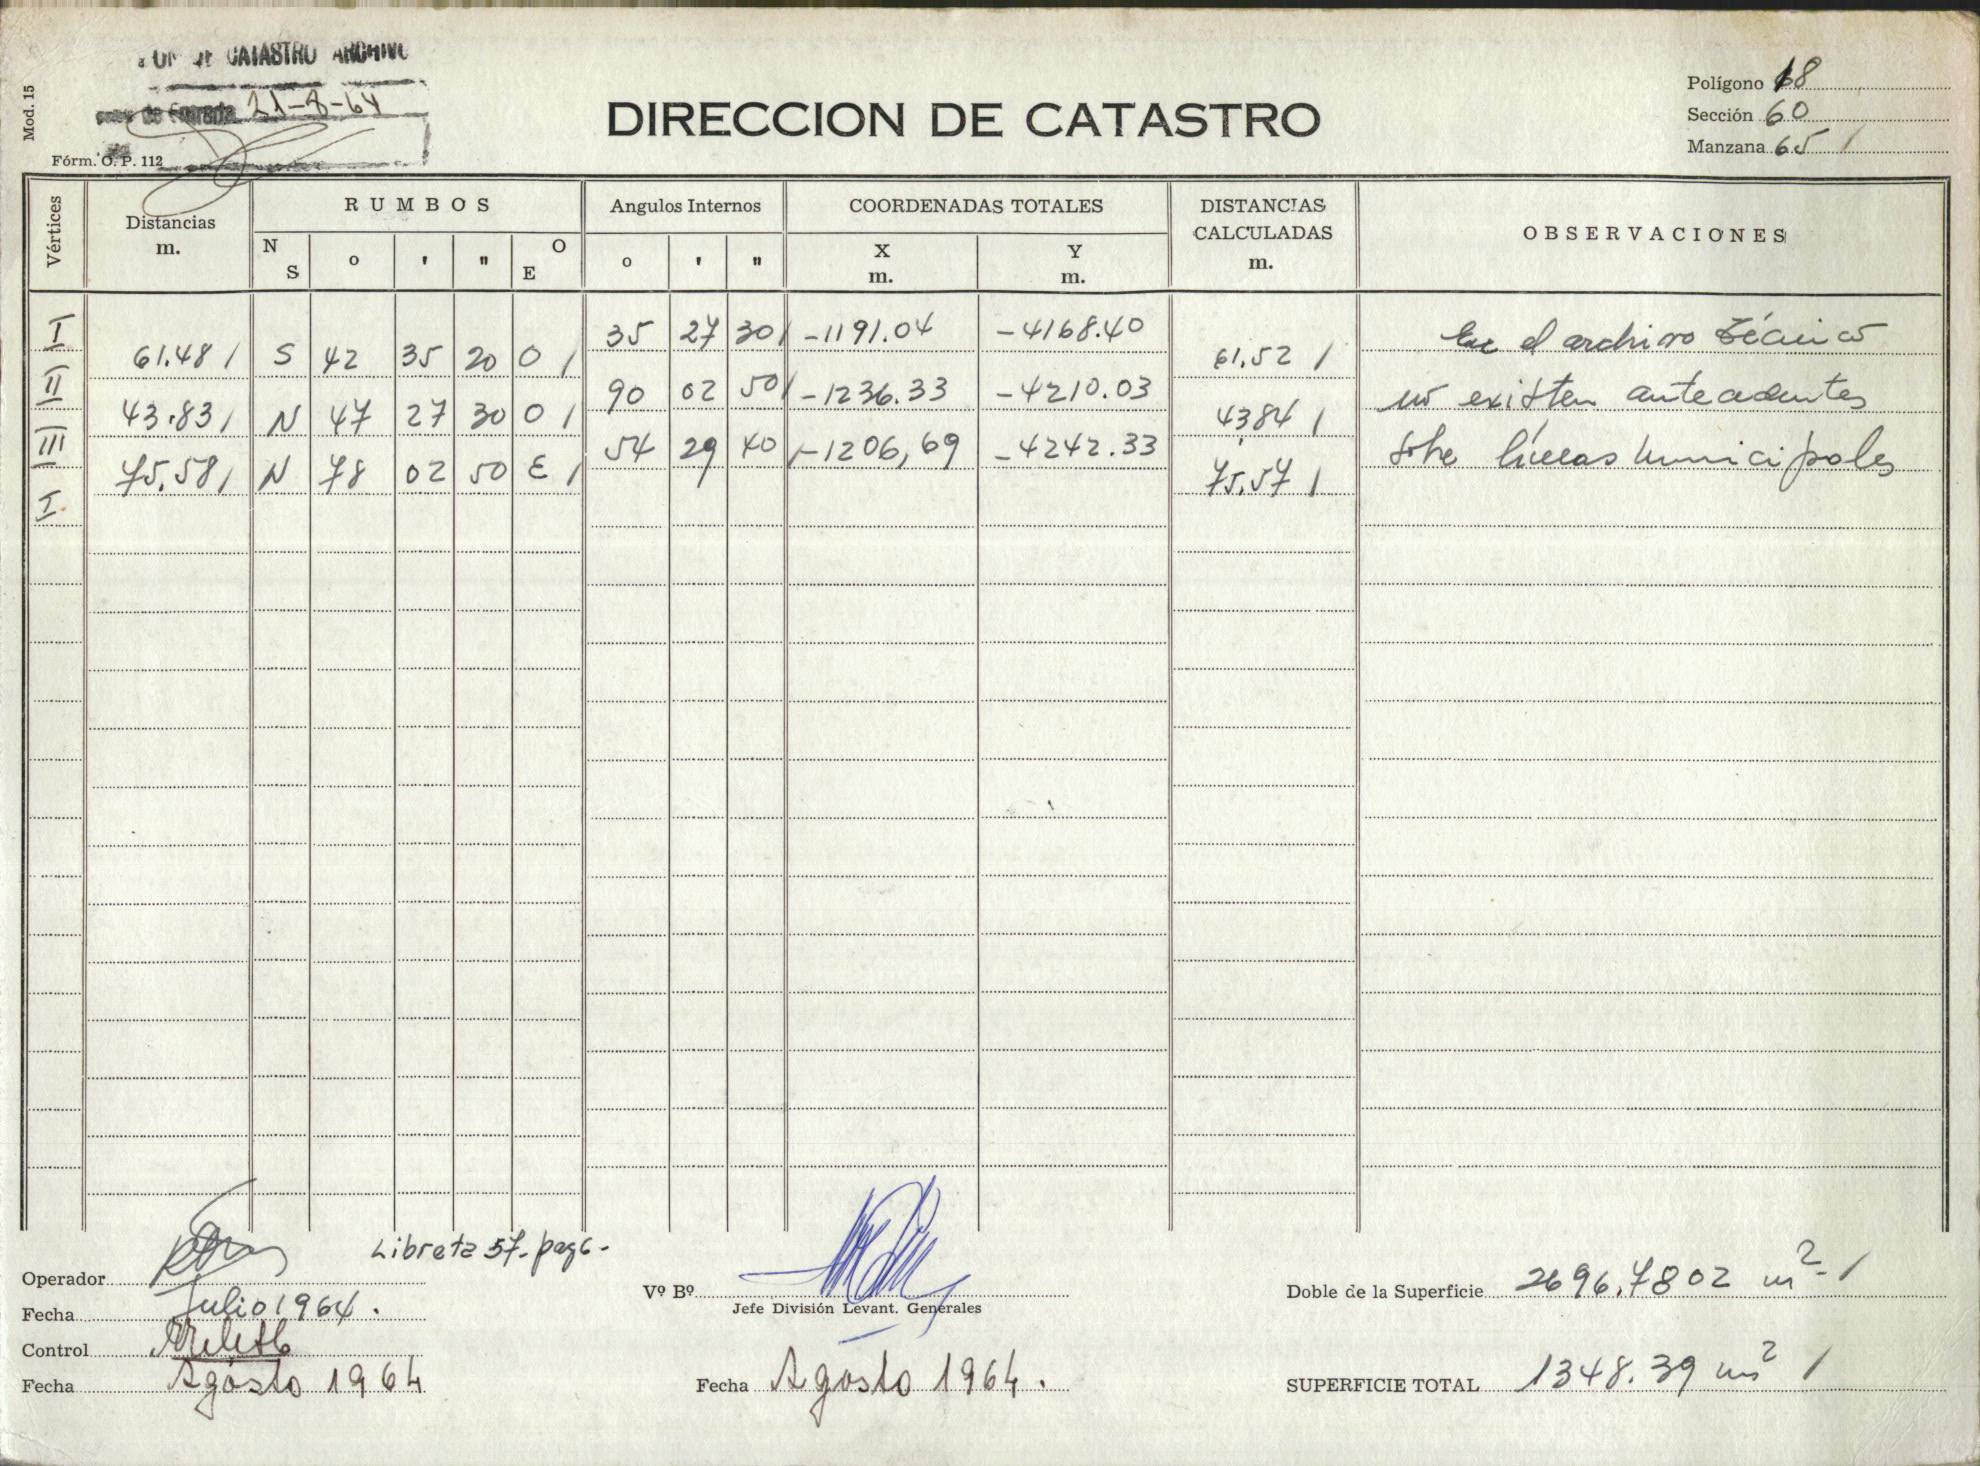 DE CATASTRO ARCHIVO
de Entrada 21-8-64
Mod. 15
Fórm. O. P. 112
DIRECCION DE CATASTRO
Polígono 18
Sección 60
Manzana 65 /
Vértices
Distancias m.
RUMBOS
N S o ' " O E
Angulos Internos
o ' "
COORDENADAS TOTALES
X m. Y m.
DISTANCIAS CALCULADAS m.
OBSERVACIONES
I 35 27 30/ -1191.04 -4168.40 En el archivo técnico
61.48/ S 42 35 20 O/ 61,52 /
II 90 02 50/ -1236.33 -4210.03 no existen antecedentes
43.83/ N 47 27 30 O/ 43,84 /
III 54 29 40/ -1206,69 -4242.33 sobre líneas municipales
75.58/ N 78 02 50 E/ 75.57 /
I
Libreta 57- pag 6-
Operador
Fecha Julio 1964.
Control
Fecha Agosto 1964
Vº Bº
Jefe División Levant. Generales
Fecha Agosto 1964.
Doble de la Superficie 2696.7802 m²- /
SUPERFICIE TOTAL 1348.39 m² /